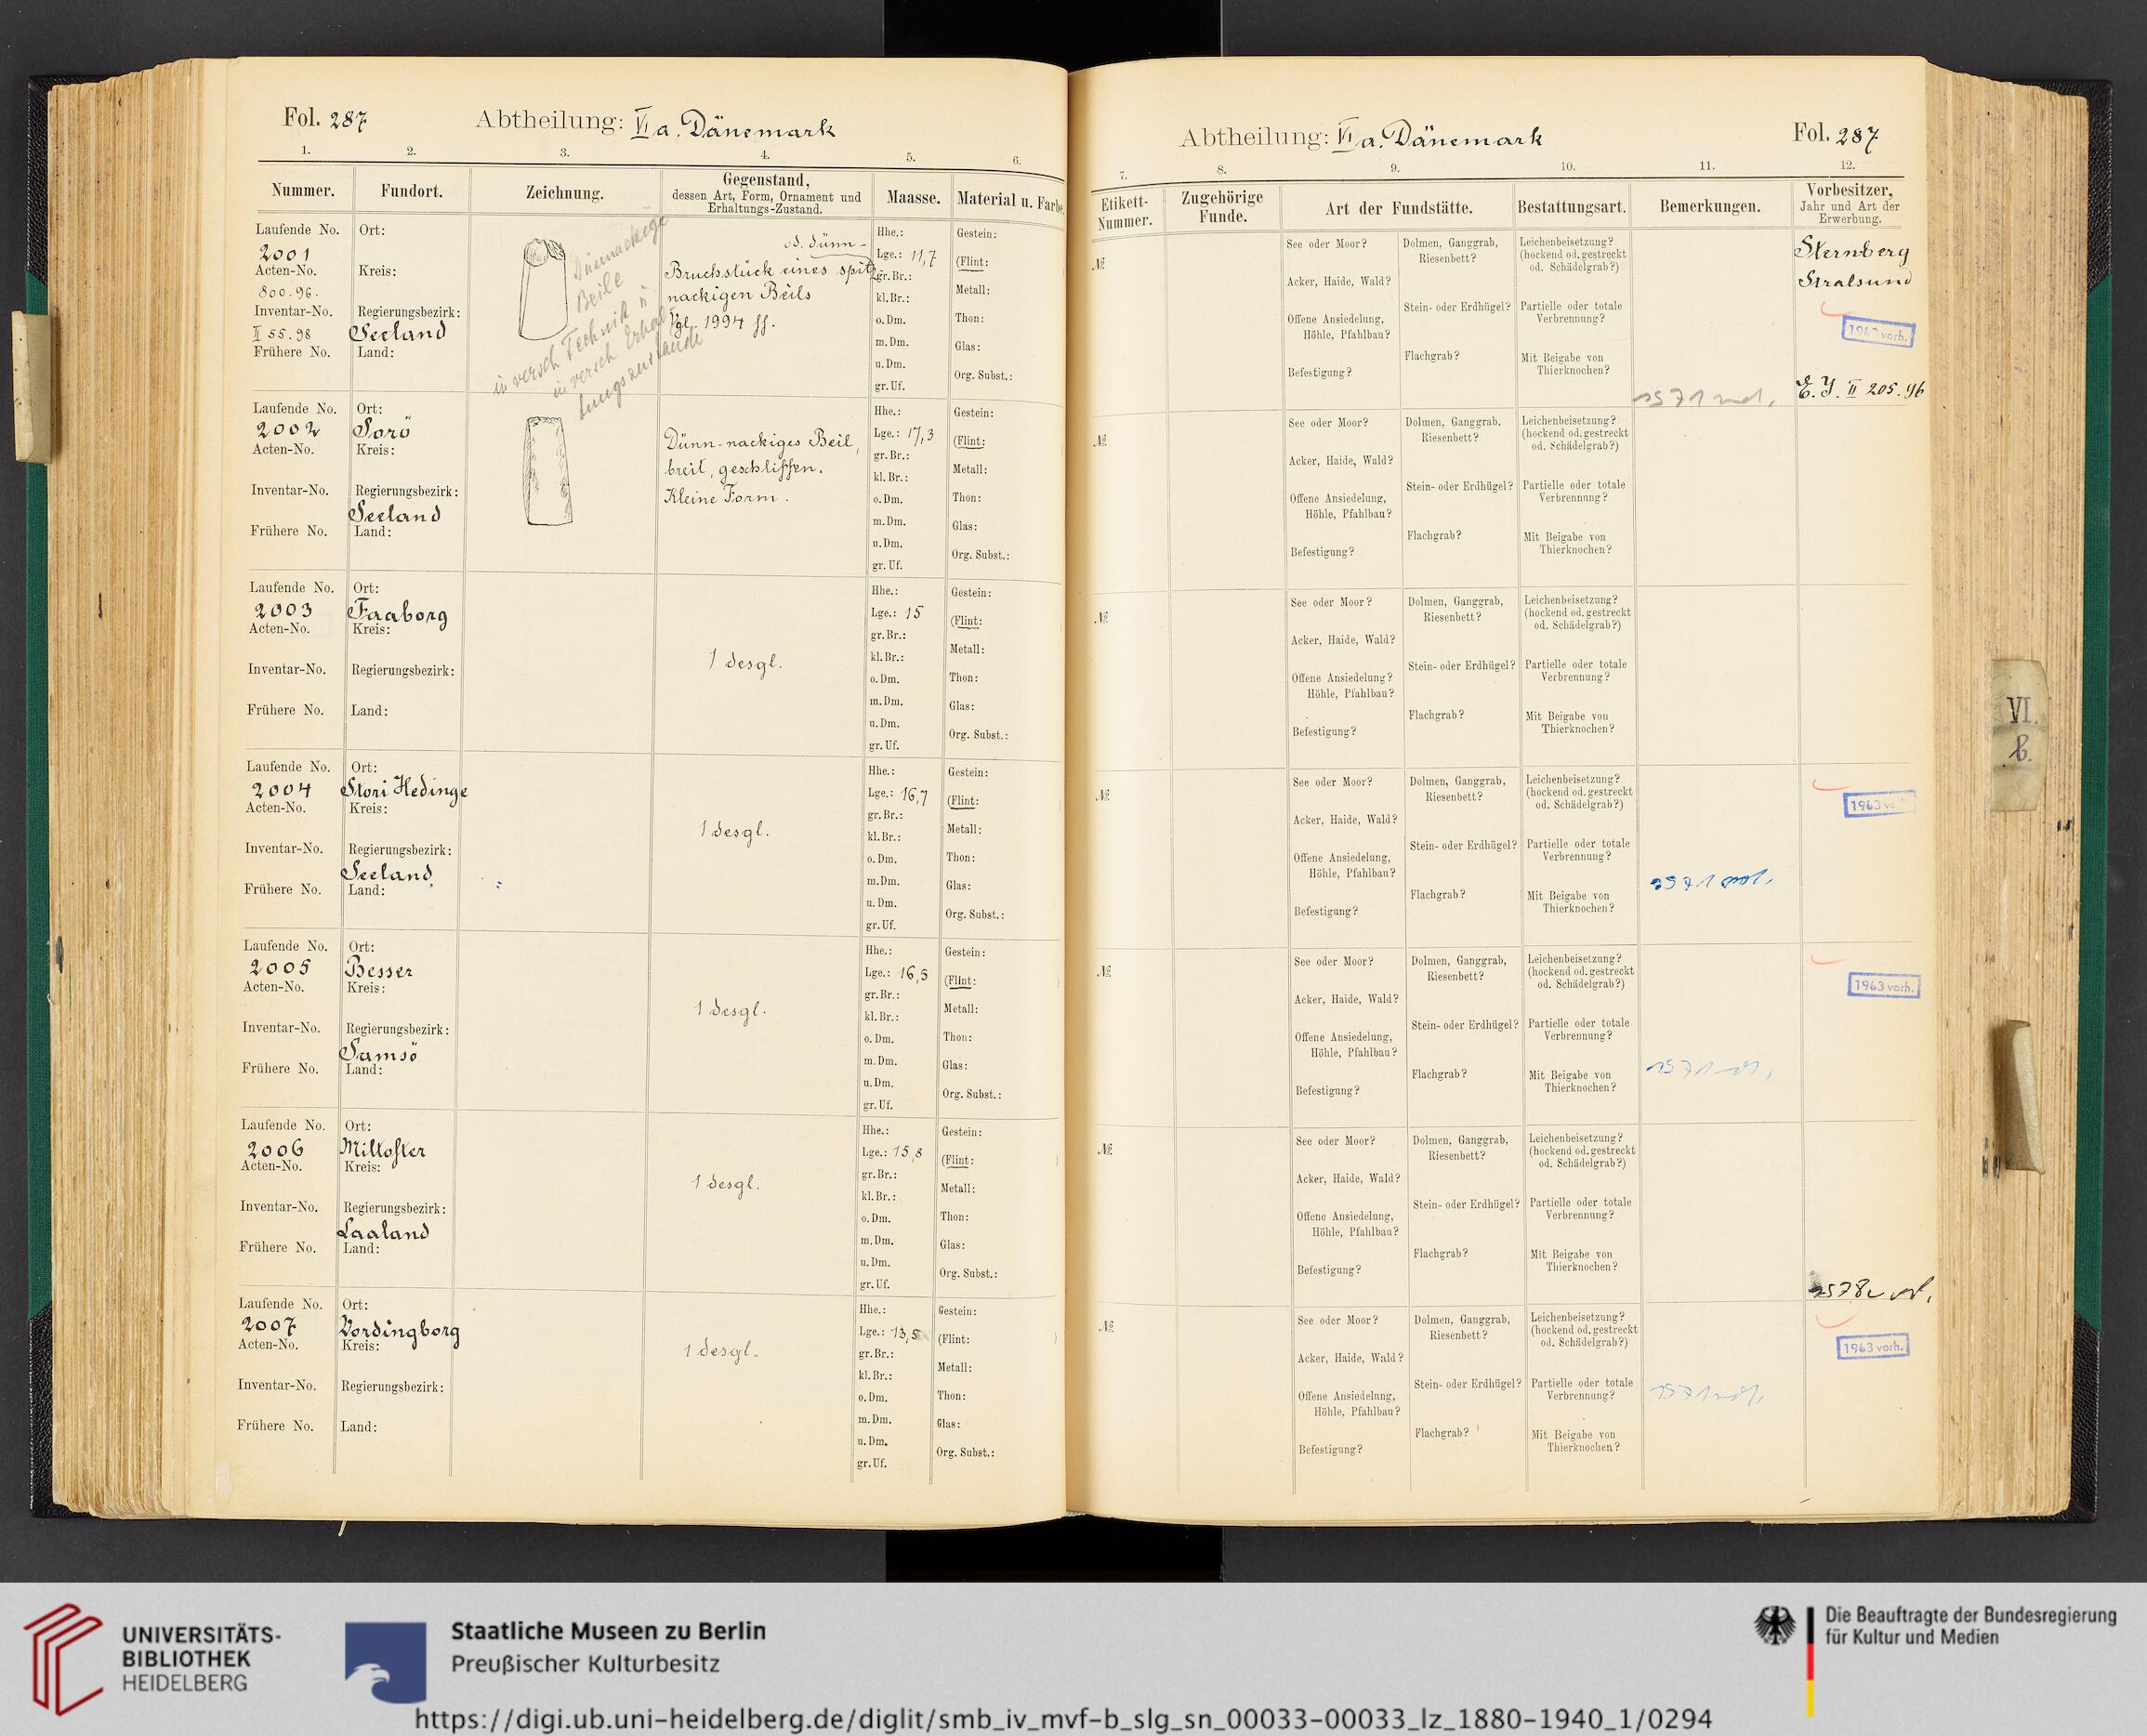 Fol. 287
Abtheilung: VI a. Dänemark
1. 2. 3. 4. 5. 6.
Nummer. Fundort. Zeichnung. Gegenstand, dessen Art, Form, Ornament und Erhaltungs-Zustand. Maasse. Material u. Farbe
Laufende No. 2001
Acten-No. 800.96.
Inventar-No. II 55.98
Frühere No.
Ort:
Kreis:
Regierungsbezirk: Seeland
Land:
Dünnackige
Beile
in versch Technik u
in versch Erhal
tungszustande
od. dünn-
Bruchstück eines spitz
nackigen Beils
Vgl. 1994 ff.
Hhe.:
Lge.: 11,7
gr. Br.:
kl. Br.:
o. Dm.
m. Dm.
u. Dm.
gr. Uf.
Gestein:
(Flint:
Metall:
Thon:
Glas:
Org. Subst.:
Laufende No. 2002
Acten-No.
Inventar-No.
Frühere No.
Ort: Sorö
Kreis:
Regierungsbezirk: Seeland
Land:
Dünn-nackiges Beil,
breit, geschliffen.
Kleine Form.
Hhe.:
Lge.: 17,3
gr. Br.:
kl. Br.:
o. Dm.
m. Dm.
u. Dm.
gr. Uf.
Gestein:
(Flint:
Metall:
Thon:
Glas:
Org. Subst.:
Laufende No. 2003
Acten-No.
Inventar-No.
Frühere No.
Ort: Faaborg
Kreis:
Regierungsbezirk:
Land:
1 desgl.
Hhe.:
Lge.: 15
gr. Br.:
kl. Br.:
o. Dm.
m. Dm.
u. Dm.
gr. Uf.
Gestein:
(Flint:
Metall:
Thon:
Glas:
Org. Subst.:
Laufende No. 2004
Acten-No.
Inventar-No.
Frühere No.
Ort: Stori Hedinge
Kreis:
Regierungsbezirk: Seeland
Land:
1 desgl.
Hhe.:
Lge.: 16,7
gr. Br.:
kl. Br.:
o. Dm.
m. Dm.
u. Dm.
gr. Uf.
Gestein:
(Flint:
Metall:
Thon:
Glas:
Org. Subst.:
Laufende No. 2005
Acten-No.
Inventar-No.
Frühere No.
Ort: Besser
Kreis:
Regierungsbezirk: Samsö
Land:
1 desgl.
Hhe.:
Lge.: 16,5
gr. Br.:
kl. Br.:
o. Dm.
m. Dm.
u. Dm.
gr. Uf.
Gestein:
(Flint:
Metall:
Thon:
Glas:
Org. Subst.:
Laufende No. 2006
Acten-No.
Inventar-No.
Frühere No.
Ort:
Kreis:
Regierungsbezirk: Laaland
Land:
1 desgl.
Hhe.:
Lge.: 15,8
gr. Br.:
kl. Br.:
o. Dm.
m. Dm.
u. Dm.
gr. Uf.
Gestein:
(Flint:
Metall:
Thon:
Glas:
Org. Subst.:
Laufende No. 2007
Acten-No.
Inventar-No.
Frühere No.
Ort: Vordingborg
Kreis:
Regierungsbezirk:
Land:
1 desgl.
Hhe.:
Lge.: 13,5
gr. Br.:
kl. Br.:
o. Dm.
m. Dm.
u. Dm.
gr. Uf.
Gestein:
(Flint: )
Metall:
Thon:
Glas:
Org. Subst.:
Abtheilung: VI a. Dänemark
Fol. 287
7. 8. 9. 10. 11. 12.
Etikett-Nummer. Zugehörige Funde. Art der Fundstätte. Bestattungsart. Bemerkungen. Vorbesitzer, Jahr und Art der Erwerbung.
№
See oder Moor?
Acker, Haide, Wald?
Offene Ansiedelung,
Höhle, Pfahlbau?
Befestigung?
Dolmen, Ganggrab,
Riesenbett?
Stein- oder Erdhügel?
Flachgrab?
Leichenbeisetzung?
(hockend od. gestreckt
od. Schädelgrab?)
Partielle oder totale
Verbrennung?
Mit Beigabe von
Thierknochen?
Sternberg
Stralsund
vorh.
E. J. II 205.96
№
See oder Moor?
Acker, Haide, Wald?
Offene Ansiedelung,
Höhle, Pfahlbau?
Befestigung?
Dolmen, Ganggrab,
Riesenbett?
Stein- oder Erdhügel?
Flachgrab?
Leichenbeisetzung?
(hockend od. gestreckt
od. Schädelgrab?)
Partielle oder totale
Verbrennung?
Mit Beigabe von
Thierknochen?
№
See oder Moor?
Acker, Haide, Wald?
Offene Ansiedelung?
Höhle, Pfahlbau?
Befestigung?
Dolmen, Ganggrab,
Riesenbett?
Stein- oder Erdhügel?
Flachgrab?
Leichenbeisetzung?
(hockend od. gestreckt
od. Schädelgrab?)
Partielle oder totale
Verbrennung?
Mit Beigabe von
Thierknochen?
№
See oder Moor?
Acker, Haide, Wald?
Offene Ansiedelung,
Höhle, Pfahlbau?
Befestigung?
Dolmen, Ganggrab,
Riesenbett?
Stein- oder Erdhügel?
Flachgrab?
Leichenbeisetzung?
(hockend od. gestreckt
od. Schädelgrab?)
Partielle oder totale
Verbrennung?
Mit Beigabe von
Thierknochen?
1963
№
See oder Moor?
Acker, Haide, Wald?
Offene Ansiedelung,
Höhle, Pfahlbau?
Befestigung?
Dolmen, Ganggrab,
Riesenbett?
Stein- oder Erdhügel?
Flachgrab?
Leichenbeisetzung?
(hockend od. gestreckt
od. Schädelgrab?)
Partielle oder totale
Verbrennung?
Mit Beigabe von
Thierknochen?
1963 vorh.
№
See oder Moor?
Acker, Haide, Wald?
Offene Ansiedelung,
Höhle, Pfahlbau?
Befestigung?
Dolmen, Ganggrab,
Riesenbett?
Stein- oder Erdhügel?
Flachgrab?
Leichenbeisetzung?
(hockend od. gestreckt
od. Schädelgrab?)
Partielle oder totale
Verbrennung?
Mit Beigabe von
Thierknochen?
№
See oder Moor?
Acker, Haide, Wald?
Offene Ansiedelung,
Höhle, Pfahlbau?
Befestigung?
Dolmen, Ganggrab,
Riesenbett?
Stein- oder Erdhügel?
Flachgrab?
Leichenbeisetzung?
(hockend od. gestreckt
od. Schädelgrab?)
Partielle oder totale
Verbrennung?
Mit Beigabe von
Thierknochen?
1963 vorh.
VI.
b.
UNIVERSITÄTS-
BIBLIOTHEK
HEIDELBERG
Staatliche Museen zu Berlin
Preußischer Kulturbesitz
Die Beauftragte der Bundesregierung
für Kultur und Medien
https://digi.ub.uni-heidelberg.de/diglit/smb_iv_mvf-b_slg_sn_00033-00033_lz_1880-1940_1/0294